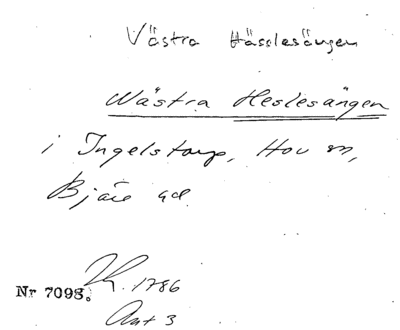 Västra Hässlesängen
Wästra Heslesängen
i Ingelstorp, Hov sn,
Bjäre hd.
Nr 7098. 1786
Akt 3